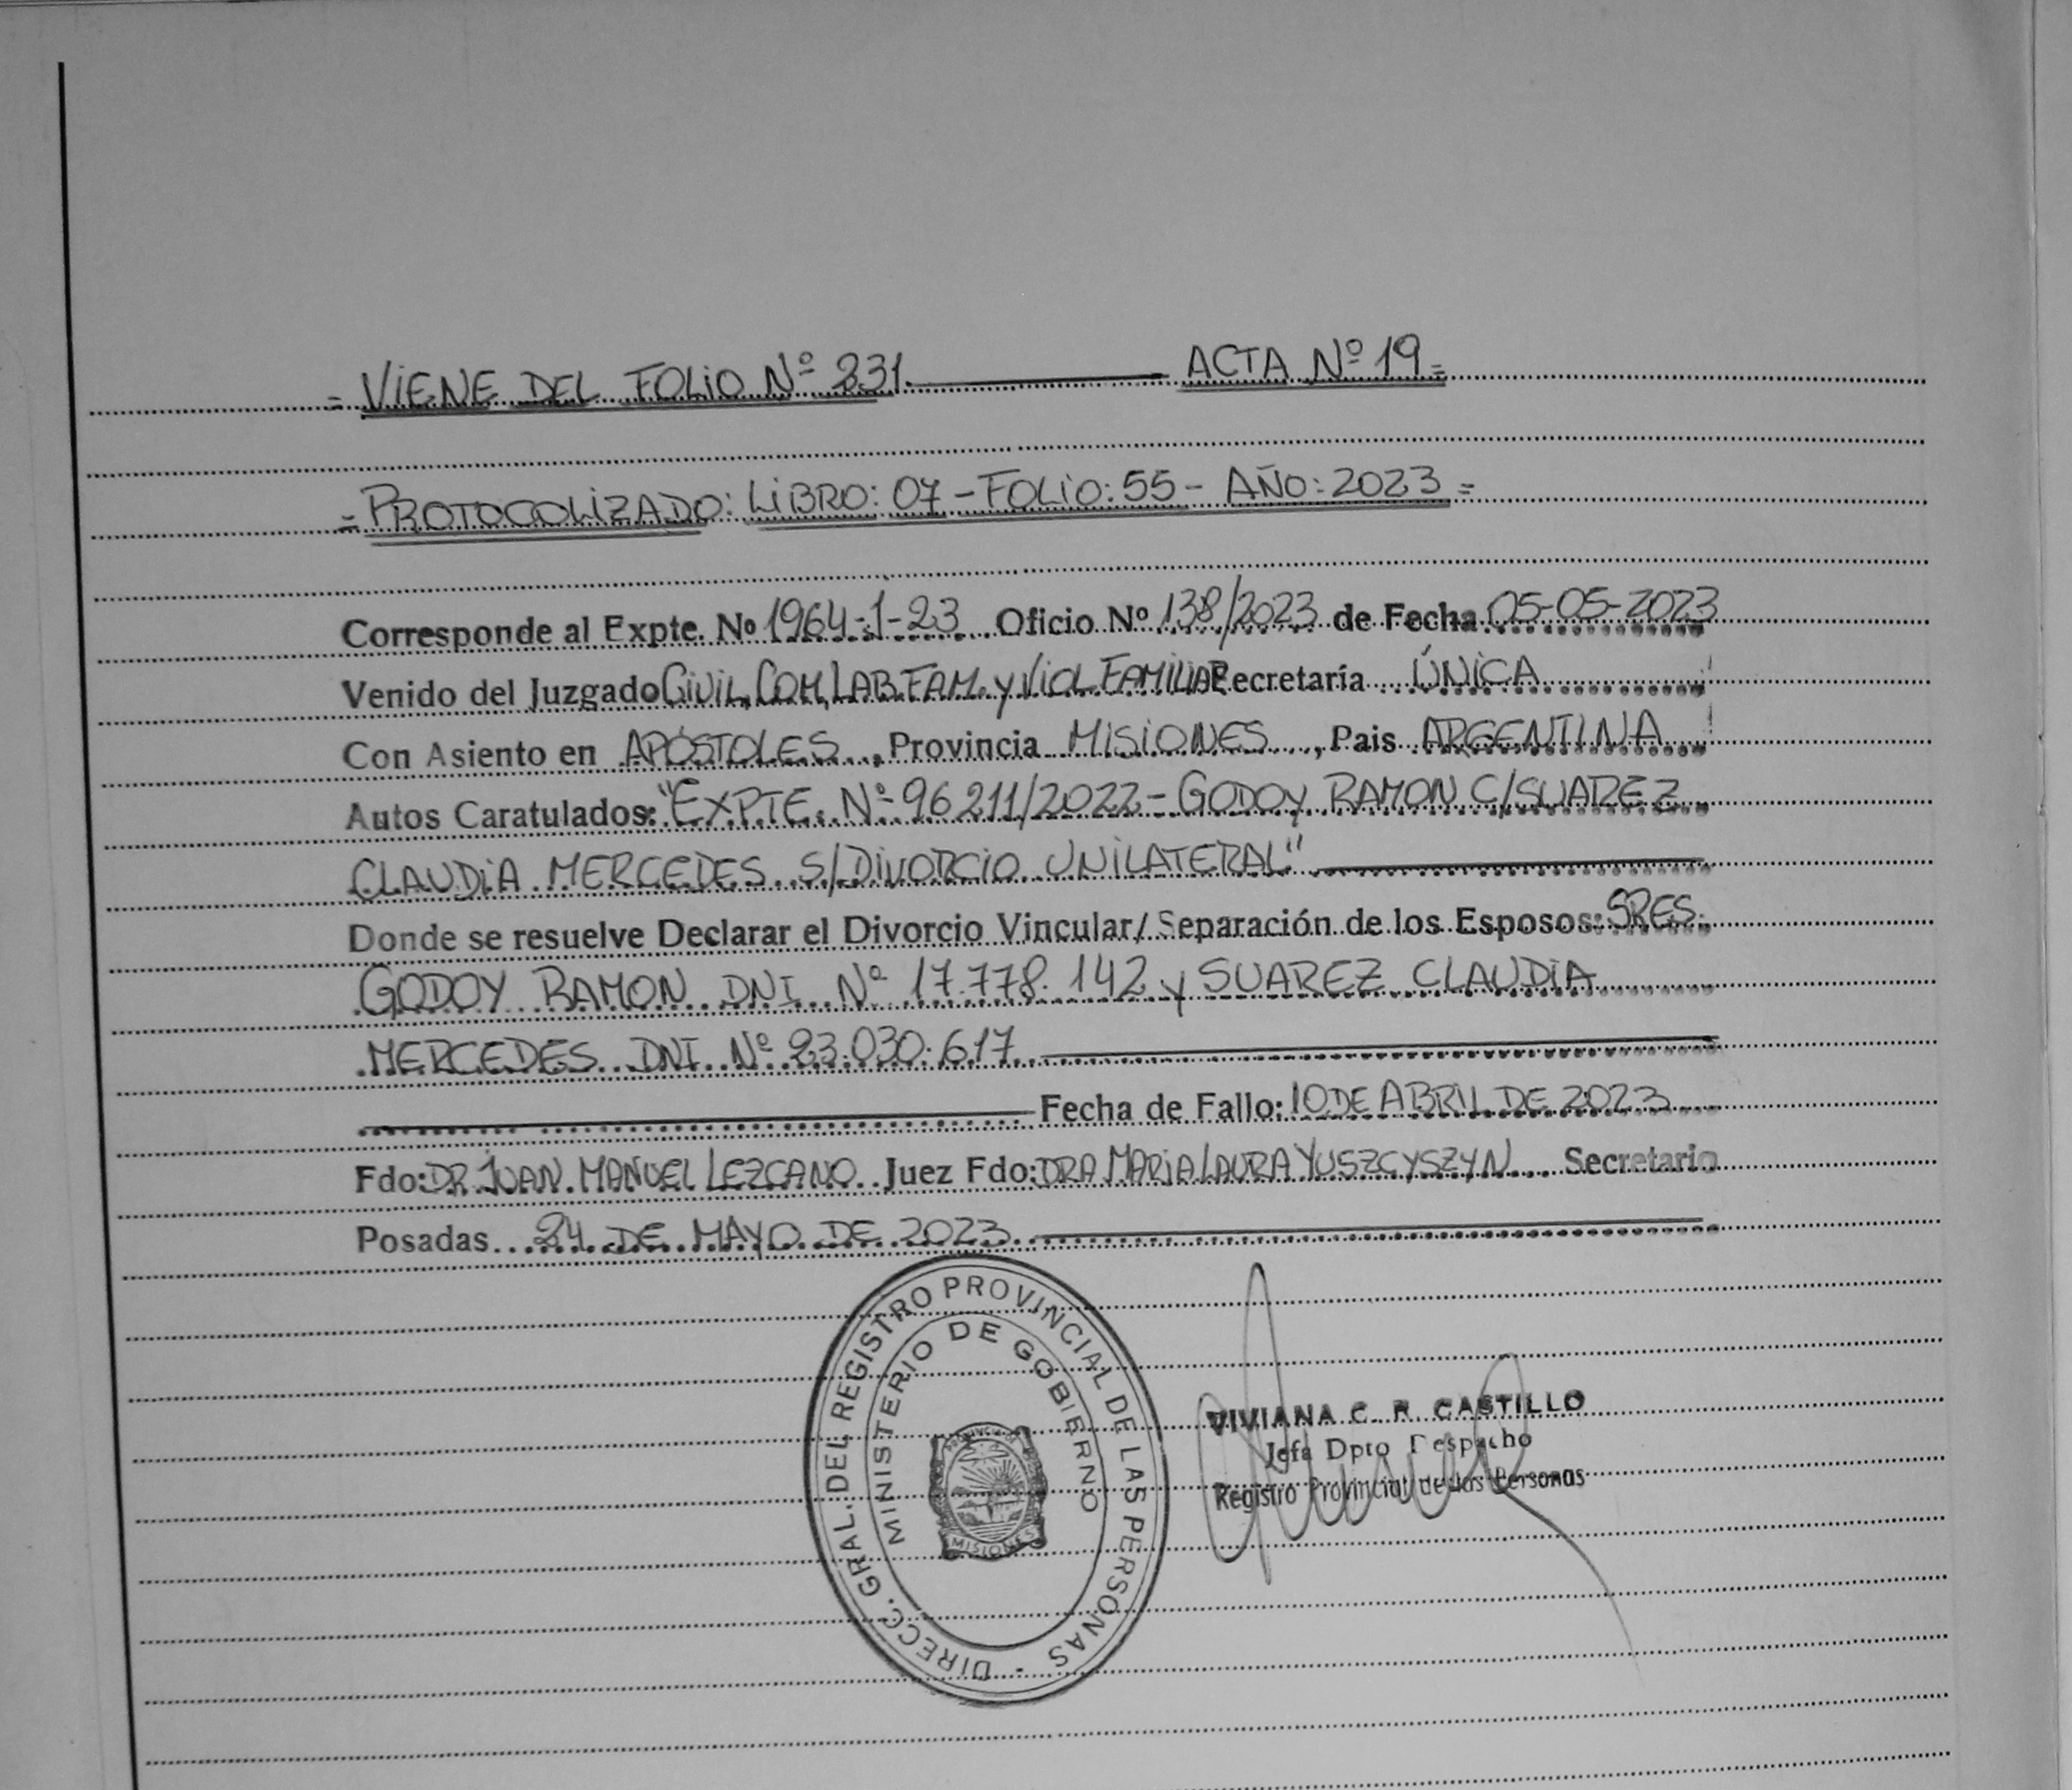 = VIENE DEL FOLIO Nº 231. ACTA Nº 19 =
= PROTOCOLIZADO: LIBRO: 07 - FOLIO: 55 - AÑO: 2023 =
Corresponde al Expte. Nº 1964-1-23 Oficio Nº 138/2023 de Fecha 05-05-2023
Venido del Juzgado CIVIL, COM, LAB. FAM. y VIOL. FAMILIAR Secretaría ÚNICA
Con Asiento en APÓSTOLES, Provincia MISIONES, Pais ARGENTINA
Autos Caratulados: "EXPTE. Nº 96211/2022 - GODOY RAMON C/SUAREZ
CLAUDIA MERCEDES S/DIVORCIO UNILATERAL"
Donde se resuelve Declarar el Divorcio Vincular/ Separación de los Esposos: SRES.
GODOY RAMON DNI Nº 17.778.142 y SUAREZ CLAUDIA
MERCEDES DNI Nº 23.030.617
Fecha de Fallo: 10 DE ABRIL DE 2023
Fdo: DR. JUAN MANUEL LEZCANO Juez Fdo: DRA MARIA LAURA YUSZCYSZYN Secretario
Posadas 24 DE MAYO DE 2023
DIRECC. GRAL. DEL REGISTRO PROVINCIAL DE LAS PERSONAS -
MINISTERIO DE GOBIERNO
PROVINCIA DE
MISIONES
VIVIANA C. R. CASTILLO
Jefa Dpto Despacho
Registro Provincial de las Personas